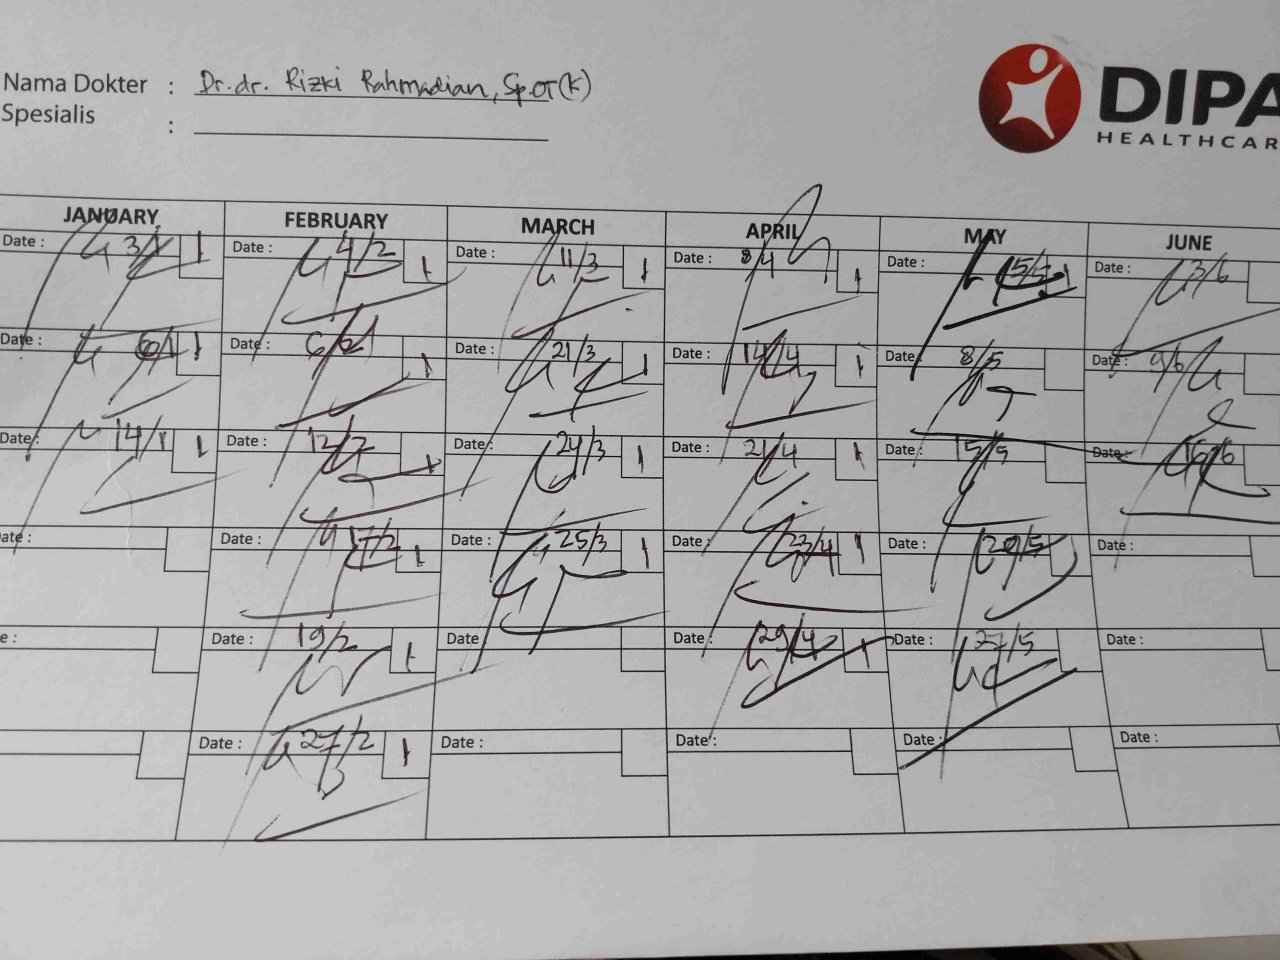 Nama Dokter : Dr. dr. Rizki Rahmadian, Sp.OT(K)
Spesialis :
DIPA
HEALTHCAR
JANUARY FEBRUARY MARCH APRIL MAY JUNE
Date : 3/1 1 Date : 4/2 1 Date : 11/3 1 Date : 8/4 1 Date : 5/5 1 Date : 3/6
Date : 6/1 1 Date : 6/2 1 Date : 21/3 1 Date : 14/4 1 Date : 8/5 Date : 9/6
Date : 14/1 1 Date : 12/2 1 Date : 24/3 1 Date : 21/4 1 Date : 15/5 Date : 16/6
ate : Date : 17/2 1 Date : 25/3 1 Date : 23/4 1 Date : 20/5 Date :
e : Date : 19/2 1 Date Date : 29/4 1 Date : 27/5 Date :
Date : 27/2 1 Date : Date : Date : Date :